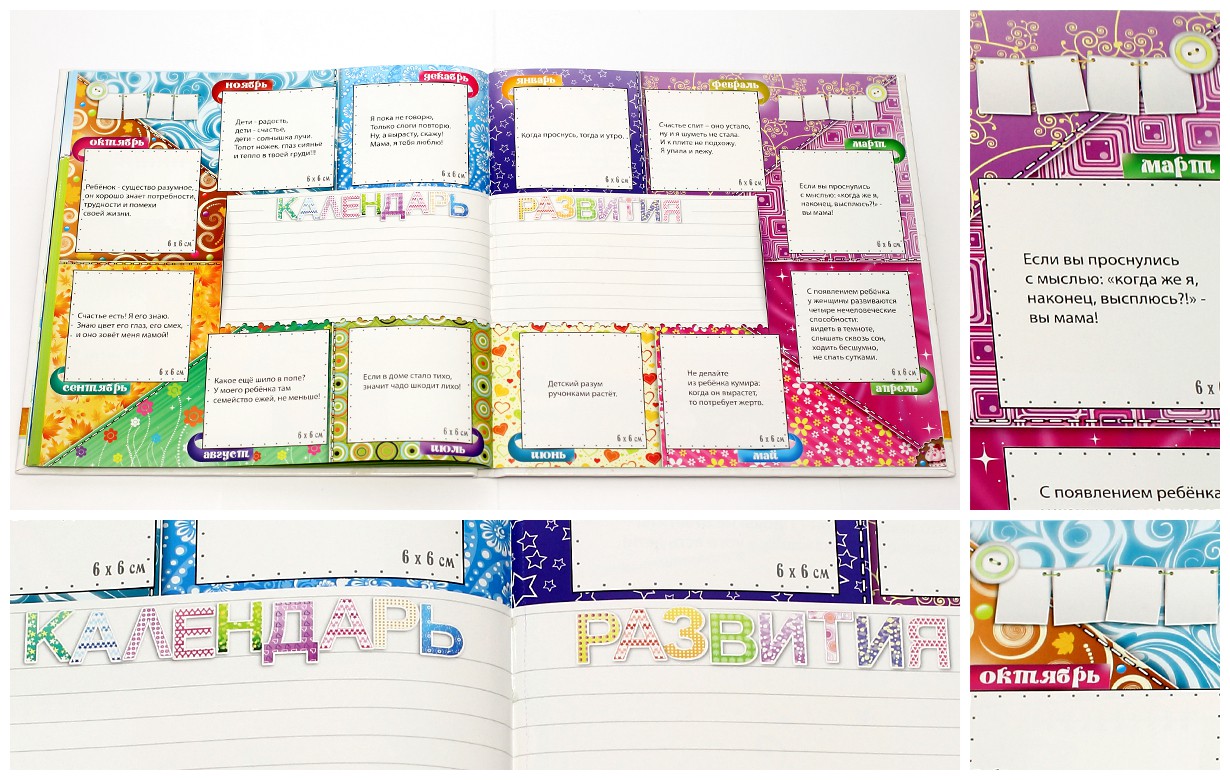 ноябрь
Дети - радость,
дети - счастье,
дети - солнышка лучи.
Топот ножек, глаз сиянье
и тепло в твоей груди!!!
6 x 6 см
декабрь
Я пока не говорю,
Только слоги повторю.
Ну, а вырасту, скажу!
Мама, я тебя люблю!
6 x 6 см
январь
Когда проснусь, тогда и утро...
6 x 6 см
февраль
Счастье спит – оно устало,
ну и я шуметь не стала.
И к плите не подхожу.
Я упала и лежу.
6 x 6 см
октябрь
Ребёнок - существо разумное,
он хорошо знает потребности,
трудности и помехи
своей жизни.
6 x 6 см
март
Если вы проснулись
с мыслью: «когда же я,
наконец, высплюсь?!» -
вы мама!
6 x 6 см
КАЛЕНДАРЬ РАЗВИТИЯ
Счастье есть! Я его знаю.
Знаю цвет его глаз, его смех,
и оно зовёт меня мамой!
6 x 6 см
сентябрь
С появлением ребёнка
у женщины развиваются
четыре нечеловеческие
способности:
видеть в темноте,
слышать сквозь сон,
ходить бесшумно,
не спать сутками.
6 x 6 см
апрель
Какое ещё шило в попе?
У моего ребёнка там
семейство ежей, не меньше!
6 x 6 см
август
Если в доме стало тихо,
значит чадо шкодит лихо!
6 x 6 см
июль
Детский разум
ручонками растёт.
6 x 6 см
июнь
Не делайте
из ребёнка кумира:
когда он вырастет,
то потребует жертв.
6 x 6 см
май
март
Если вы проснулись
с мыслью: «когда же я,
наконец, высплюсь?!» -
вы мама!
6 x
С появлением ребёнка
6 x 6 см
6 x 6 см
КАЛЕНДАРЬ РАЗВИТИЯ
октябрь